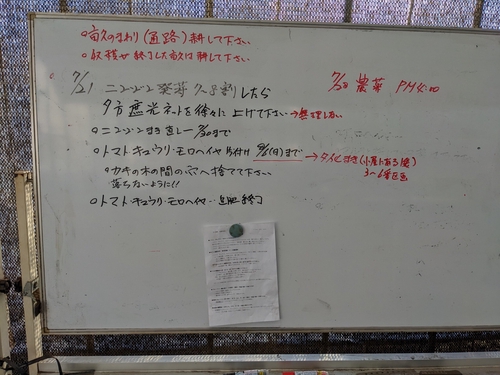 ○畝のまわり(通路)耕して下さい
○収穫が終了した畝は耕して下さい
7/21 ニンジン発芽 久8割したら
夕方遮光ネットを徐々に上げて下さい→無理しない
7/28 農薬 PM4:00
○ニンジンまき直し 7/30まで
○トマト キュウリ・モロヘイヤ 片付け (日)まで→タイヒまき(小屋にある)
3〜 区画
○カキの木の間の穴へ捨てて下さい
落ちないように!!
○トマト・キュウリ・モロヘイヤ… 追肥終了